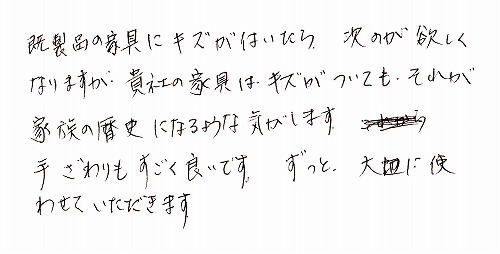 既製品の家具にキズがはいたら、次のが欲しく
なりますが、貴社の家具は、キズがついても、それが
家族の暦史になるような気がします。
手ざわりもすごく良いです。ずっと、大切に使
わせていただきます